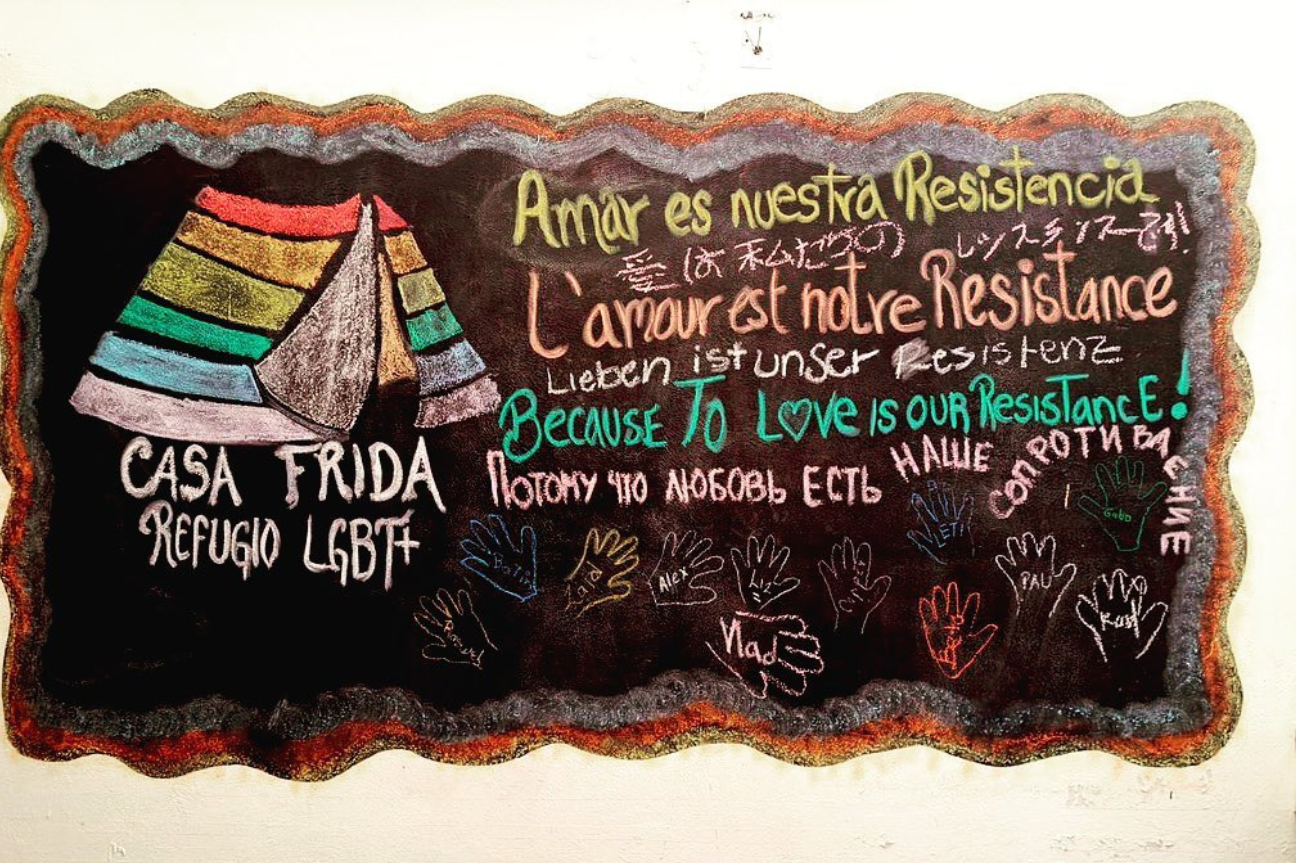 Amar es nuestra Resistencia
愛は私たちの レジスタンスです!
L'amour est notre Resistance
Lieben ist unser Resistenz
Because To Love is our Resistance!
Потому что любовь есть наше сопротивление
CASA FRIDA
REFUGIO LGBT+
Gabo
LETI
Alex
PAU
Vlad